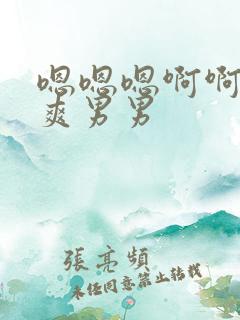 嗯嗯嗯啊啊
爽男男
張亮頻
未经同意禁止转载